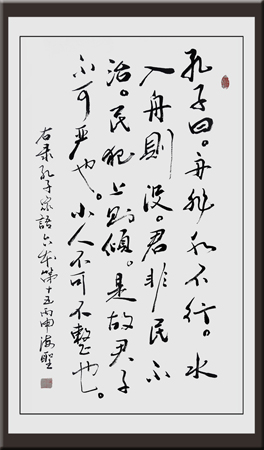 孔子曰。舟非水不行。水
入舟則没。君非民不
治。民犯上則倾。是故君子
不可严也。小人不可不整也。
右录孔子家語六本第十五丙申海聖